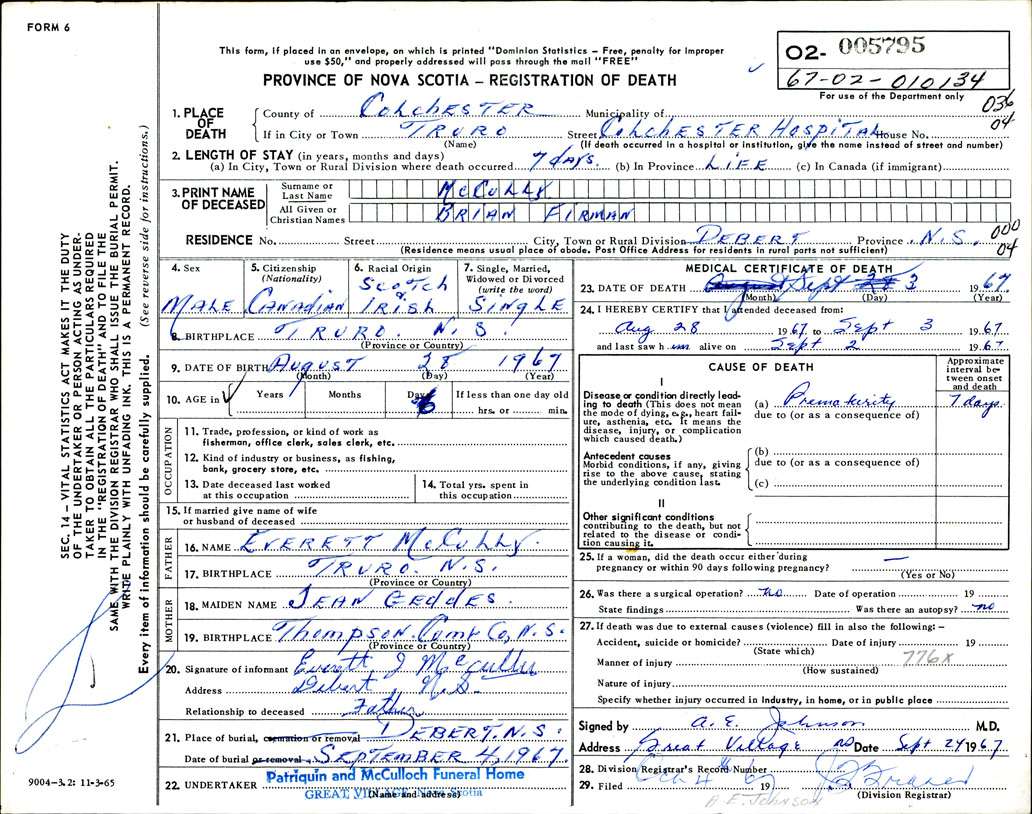 FORM 6
This form, if placed in an envelope, on which is printed "Dominion Statistics – Free, penalty for improper
use $50," and properly addressed will pass through the mail "FREE"
PROVINCE OF NOVA SCOTIA – REGISTRATION OF DEATH
O2- 005795
67-02-010134
For use of the Department only
036
04
1. PLACE OF DEATH
County of COLCHESTER Municipality of
If in City or Town TRURO Street COLCHESTER HOSPITAL House No.
(Name) (If death occurred in a hospital or institution, give the name instead of street and number)
2. LENGTH OF STAY (in years, months and days)
(a) In City, Town or Rural Division where death occurred 7 days. (b) In Province LIFE (c) In Canada (if immigrant)
3. PRINT NAME OF DECEASED
Surname or Last Name McCULLY
All Given or Christian Names BRIAN FIRMAN
RESIDENCE No. Street City, Town or Rural Division DEBERT Province N.S.
(Residence means usual place of abode. Post Office Address for residents in rural parts not sufficient)
000
04
4. Sex MALE
5. Citizenship (Nationality) CANADIAN
6. Racial Origin SCOTCH & IRISH
7. Single, Married, Widowed or Divorced (write the word) SINGLE
8. BIRTHPLACE TRURO. N.S
(Province or Country)
9. DATE OF BIRTH AUGUST 28 1967
(Month) (Day) (Year)
10. AGE in Years Months Days 6 If less than one day old
hrs. or min.
OCCUPATION
11. Trade, profession, or kind of work as
fisherman, office clerk, sales clerk, etc.
12. Kind of industry or business, as fishing,
bank, grocery store, etc.
13. Date deceased last worked
at this occupation
14. Total yrs. spent in
this occupation
15. If married give name of wife
or husband of deceased
FATHER
16. NAME EVERETT McCULLY.
17. BIRTHPLACE TRURO. N.S.
(Province or Country)
MOTHER
18. MAIDEN NAME JEAN GEDDES.
19. BIRTHPLACE Thompson. Cumb Co, N.S.
(Province or Country)
20. Signature of informant Everett J McCully
Address Debert N.S.
Relationship to deceased Father
21. Place of burial, cremation or removal DEBERT. N.S.
Date of burial or removal SEPTEMBER 4, 1967
22. UNDERTAKER Patriquin and McCulloch Funeral Home
GREAT VILLAGE, Nova Scotia
(Name and address)
MEDICAL CERTIFICATE OF DEATH
23. DATE OF DEATH Sept 3 1967
(Month) (Day) (Year)
24. I HEREBY CERTIFY that I attended deceased from:
Aug 28 1967 to Sept 3 1967
and last saw him alive on Sept 2 1967
CAUSE OF DEATH
Approximate interval between onset and death
I
Disease or condition directly leading to death (This does not mean
the mode of dying, e.g., heart failure, asthenia, etc. It means the
disease, injury, or complication
which caused death.)
(a) Prematurity 7 days
due to (or as a consequence of)
Antecedent causes
Morbid conditions, if any, giving
rise to the above cause, stating
the underlying condition last.
(b)
due to (or as a consequence of)
(c)
II
Other significant conditions
contributing to the death, but not
related to the disease or condition causing it.
25. If a woman, did the death occur either during
pregnancy or within 90 days following pregnancy? —
(Yes or No)
26. Was there a surgical operation? no Date of operation 19
State findings Was there an autopsy? no
27. If death was due to external causes (violence) fill in also the following: –
Accident, suicide or homicide? Date of injury 19
(State which)
Manner of injury 776X
(How sustained)
Nature of injury
Specify whether injury occurred in industry, in home, or in public place
Signed by A. E. Johnson M.D.
Address Great Village NS Date Sept 24 1967
28. Division Registrar's Record Number
29. Filed Oct 4th 1967
(Division Registrar)
A-E. JOHNSON
SEC. 14 – VITAL STATISTICS ACT MAKES IT THE DUTY
OF THE UNDERTAKER OR PERSON ACTING AS UNDER-
TAKER TO OBTAIN ALL THE PARTICULARS REQUIRED
IN THE "REGISTRATION OF DEATH" AND TO FILE THE
SAME WITH THE DIVISION REGISTRAR WHO SHALL ISSUE THE BURIAL PERMIT.
WRITE PLAINLY WITH UNFADING INK. THIS IS A PERMANENT RECORD.
Every item of information should be carefully supplied. (See reverse side for instructions.)
9004–3.2: 11-3-65